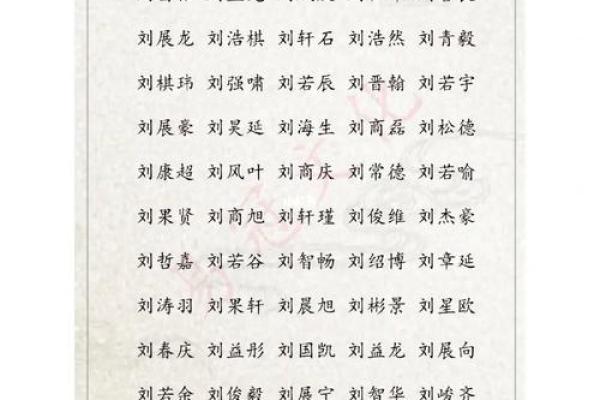 刘展龙 刘浩棋 刘轩石 刘浩然 刘青毅
刘棋玮 刘强啸 刘若辰 刘晋翰 刘若宇
刘展豪 刘昊延 刘海生 刘商磊 刘松德
刘康超 刘风叶 刘商庆 刘常德 刘若喻
刘果贤 刘商旭 刘轩瑾 刘俊维 刘杰豪
刘哲嘉 刘若谷 刘智畅 刘绍博 刘章延
刘涛羽 刘果轩 刘晨旭 刘彬景 刘星欧
刘春庆 刘益彤 刘国凯 刘益龙 刘展向
刘若余 刘俊毅 刘展宁 刘智华 刘峻齐